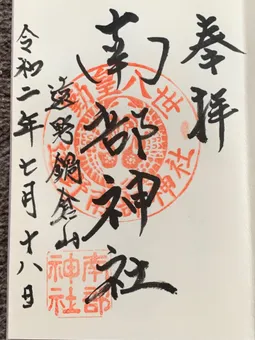 奉拝
南部神社
遠野鍋倉山
令和二年七月十八日
勤皇八世
南部神社